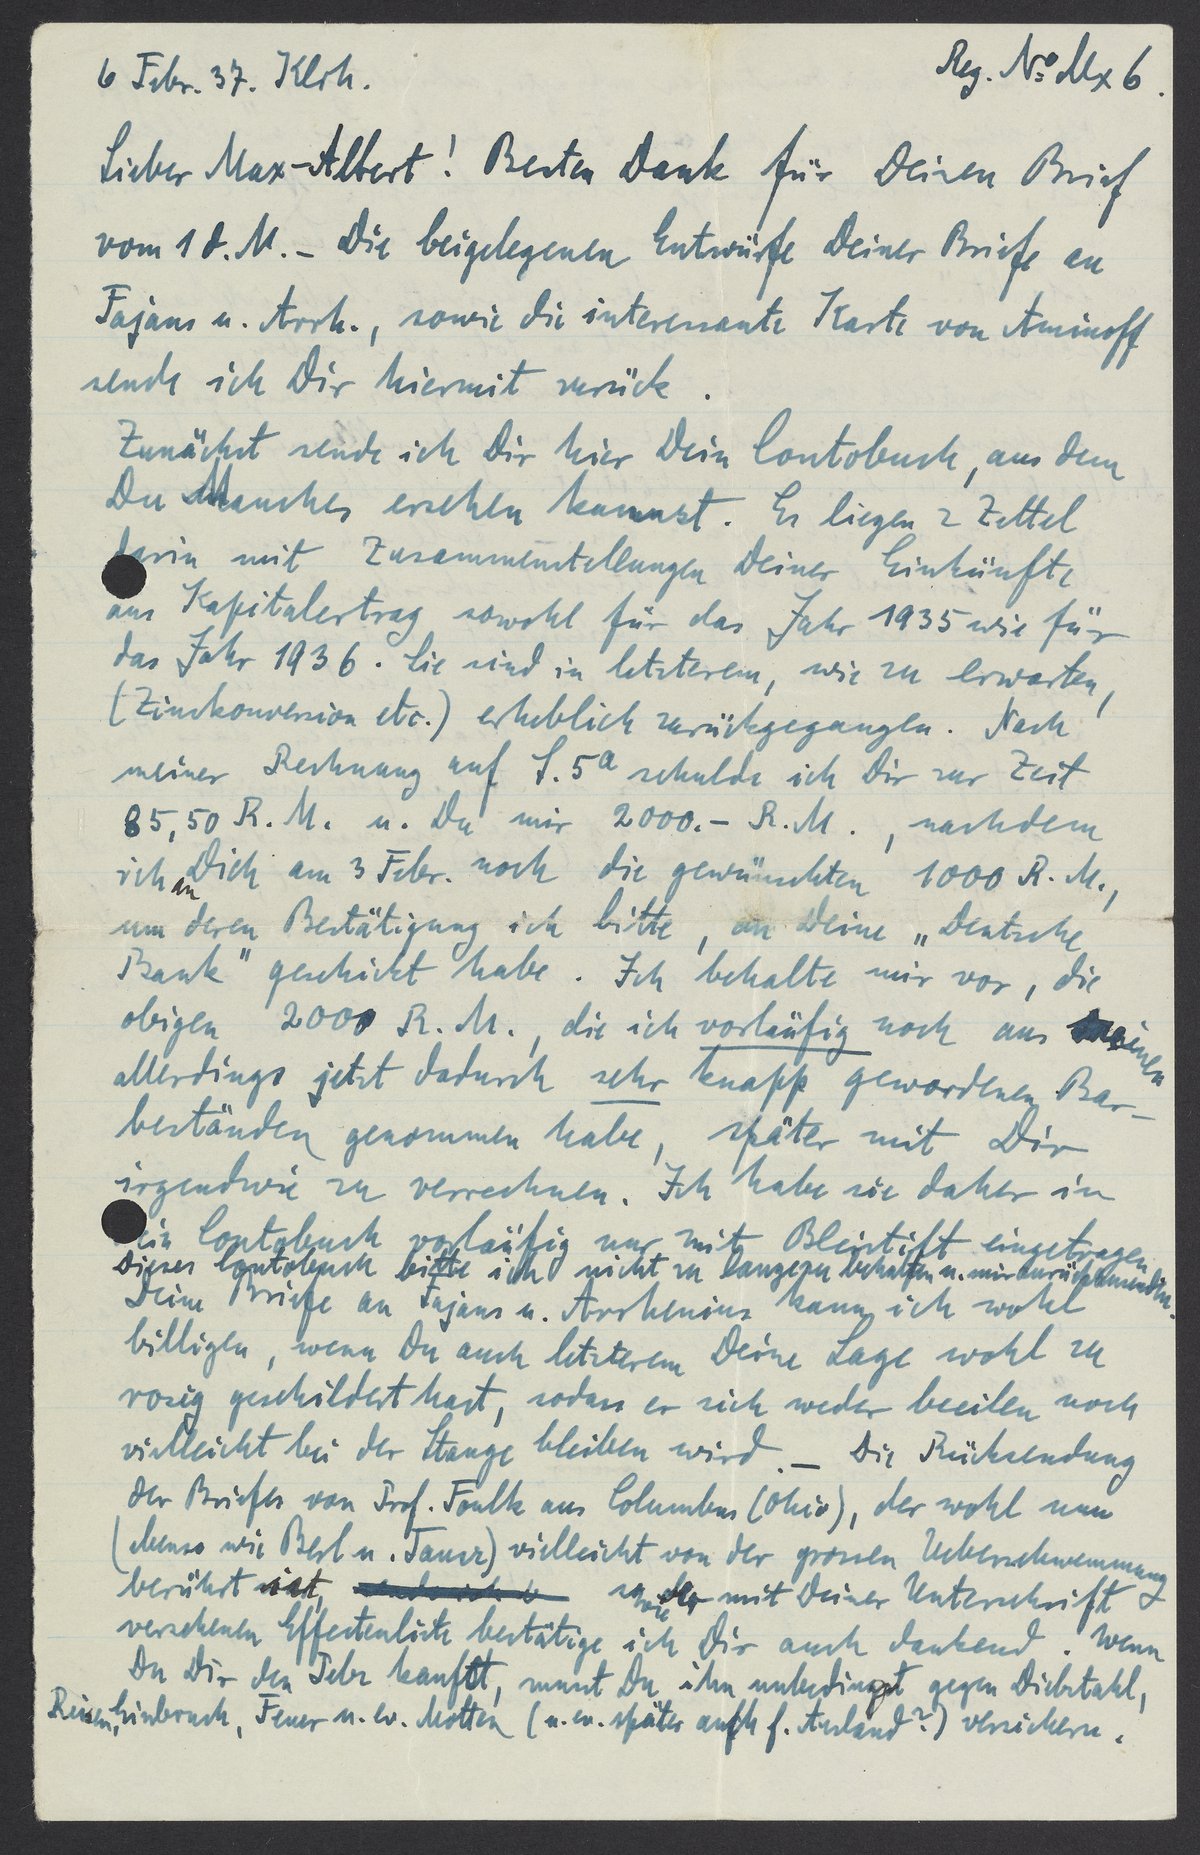 6 Febr. 37. Klrh.
Reg. No Mx 6.
Lieber Max-Albert! Besten Dank für Deinen Brief
vom 1 d. M. – Die beigelegenen Entwürfe Deiner Briefe an
Fajans u. Arrh., sowie die interessante Karte von Aminoff
sende ich Dir hiermit zurück.
Zunächst sende ich Dir hier Dein Contobuch, aus dem
Du Manches ersehen kannst. Es liegen 2 Zettel
darin mit Zusammenstellungen Deiner Einkünfte
aus Kapitalertrag sowohl für das Jahr 1935 wie für
das Jahr 1936. Sie sind in letzterem, wie zu erwarten,
(Zinskonversion etc.) erheblich zurückgegangen. Nach
meiner Rechnung auf S. 5a schulde ich Dir zur Zeit
85,50 R. M. u. Du mir 2000.– R. M., nachdem
ich an Dich am 3 Febr. noch die gewünschten 1000 R. M.,
um deren Bestätigung ich bitte, an Deine „Deutsche
Bank" geschickt habe. Ich behalte mir vor, die
obigen 2000 R. M., die ich vorläufig noch aus meinen
allerdings jetzt dadurch sehr knapp gewordenen Bar-
beständen genommen habe, später mit Dir
irgendwie zu verrechnen. Ich habe sie daher in
Dein Contobuch vorläufig nur mit Bleistift eingetragen
Dieses Contobuch bitte ich nicht zu lange zu behalten u. mir zurückzusenden.
Deine Briefe an Fajans u. Arrhenius kann ich wohl
billigen, wenn Du auch letzterem Deine Lage wohl zu
rosig geschildert hast, sodass er sich weder beeilen noch
vielleicht bei der Stange bleiben wird. – Die Rücksendung
der Briefes von Prof. Foulk aus Columbus (Ohio), der wohl nun
(ebenso wie Berl u. ) vielleicht von der grossen Ueberschwemmung
berührt ist, sowie der mit Deiner Unterschrift
versehenen Effectenliste bestätige ich Dir auch dankend. Wenn
Du Dir den Pelz kaufst, musst Du ihn unbedingt gegen Diebstahl,
Reisen, Einbruch, Feuer u. ev. Motten (u. ev. später auch f. Ausland?) versichern.